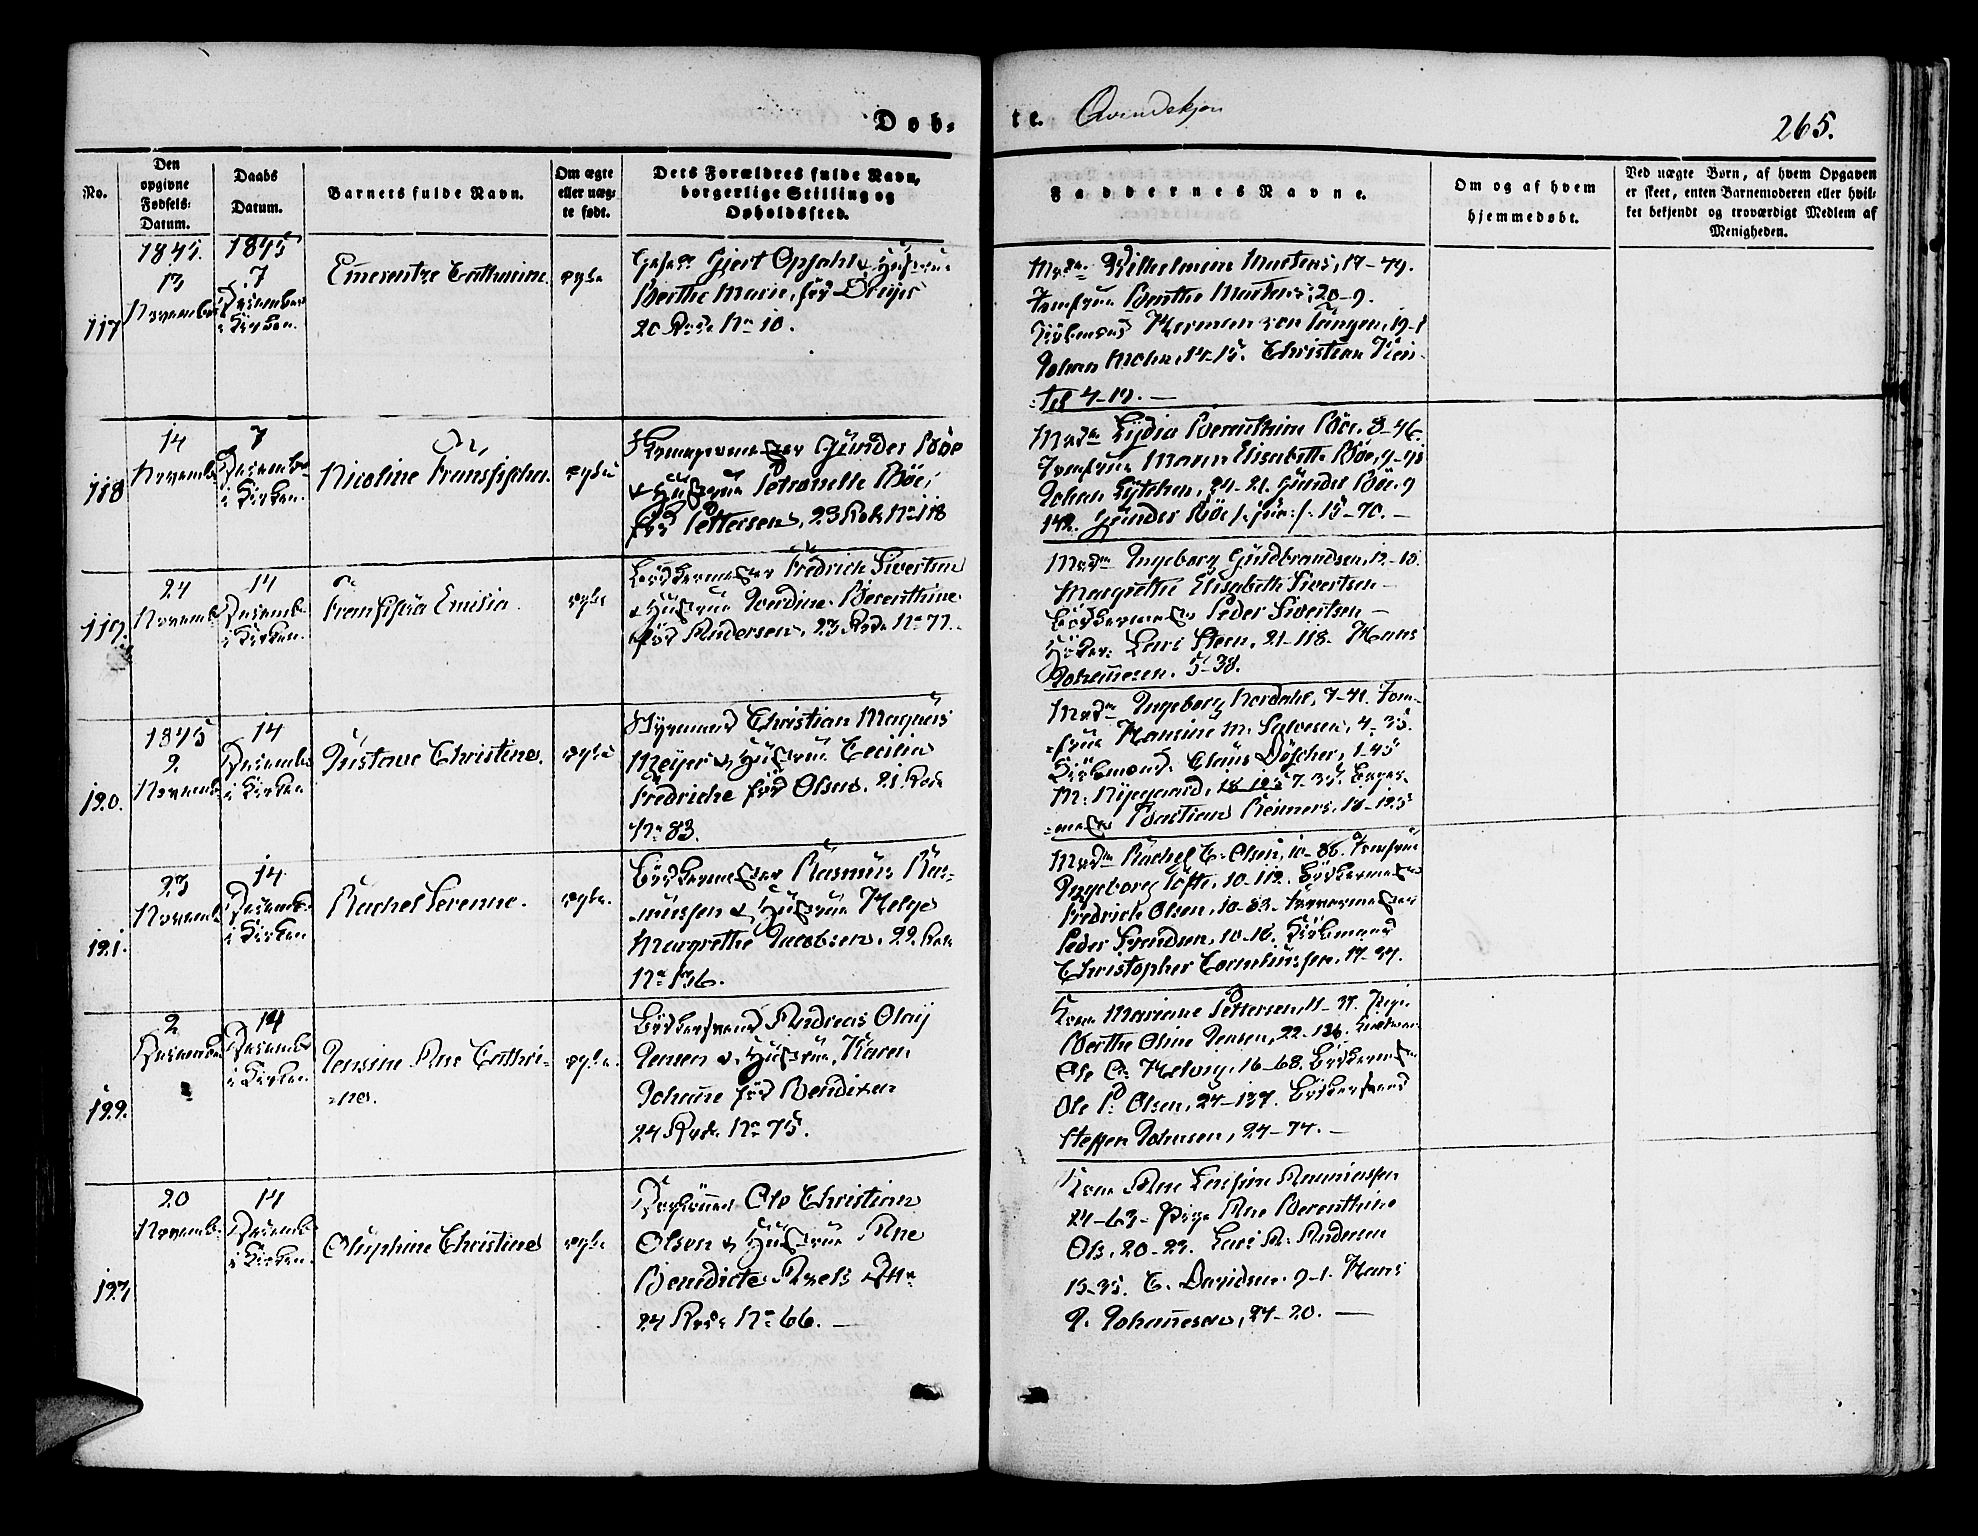 Døb-
te. Qvindekjøn
265.
No.
Den opgivne Fødsels-Datum.
Daabs Datum.
Barnets fulde Navn.
Om ægte eller uægte født.
Dets Forældres fulde Navn, borgerlige Stilling og Opholdssted.
Faddernes Navne.
Om og af hvem hjemmedøbt.
Ved uægte Børn, af hvem Opgaven er skeet, enten Barnemoderen eller hvilket bekjendt og troværdigt Medlem af Menigheden.
117
1845.
13
November
1845
7
December
i Kirken.
Emerentze Cathrine
ægte
Gjert Opsahl & Hustrue
Berthe Marie, fød Dreyer
20 Rode No 10.
Mad. Wilhelmine Martens, 17-79.
Jomfrue Berthe Martens, 20-9.
Kjøbmand Herman von Tangen, 19-1
Johan Mohn, 14-15. Christian
4-19. —
118
14
Novemb
7
Decembr
i Kirken.
Nicoline Fransischa.
ægte
Gunder Böe
& Hustrue Petronelle Böe,
fød Pettersen, 23 Rode No 118
Mad. Lydia Berenthine Böe, 8-46.
Jomfrue Maren Elisabeth Böe, 9-
Johan Lÿtchen, 24-21. Gunder Böe, 9
142. Gunder Böe /: jun :/ 15-70. —
119.
24
Novemb
14
Decemb
i Kirken.
Fransischa Emilia.
ægte
Bødkermester Fredrich Sivertsen
& Hustrue Berenthine
fød Andersen, 23 Rode No 77.
Mad. Ingeborg Guldbrandsen, 12-10.
Margrethe Elisabeth Sivertsen —
Bødkermester Peder Sivertsen —
Lars Steen, 21-118- Hans
Johannesen. 5-38.
120.
1845
2
Novemb
14
Decemb
i Kirken
Gustave Christine.
ægte
Styrmand Christian Magnus
Meÿer & Hustrue Cecilia
Fredriche fød Olsen. 21 Rode
No 83.
Mad. Ingeborg Nordahl, 7-41. Jom-
frue Hansine M. Salvesen, 4-35.
Kjøbmand Claus Döscher, 1-45
M. Nÿegaard, 7-35. Bager-
mester Bastian Reimers, 18-125
121.
23
Novemb
14
Decemb
i Kirken
Rachel Serenne.
ægte.
Bødkermester Rasmus Ras-
mussen & Hustrue Helge
Margrethe Jacobsen. 22 Rode
No
Mad. Rachel C. Olsen, 10-86. Jomfrue
Ingeborg Tofte, 10-112. Bødkermester
Fredrich Olsen, 10-83.
Peder Svendsen, 10-16. Kjøbmand
Christopher Corneliussen, 17-27.
122.
2
December
14
Decemb
i Kirken.
Jensine Ane Cathri-
-ne.
ægte.
Bødkersvend Andreas Olaÿ
Jensen & Hustrue, Karen
Johanne fød Bendixen
24 Rode No 75.
Kone Mariane Pettersen, 11-37. Pige
Berthe Oline Jensen, 22-126.
Ole C. Helvig, 16-68. Bødkermester
Ole P. Olsen, 24-137. Bødkersvend
Steffen Johnsen, 24-74. —
123
20
Novemb
14
Decemb
i Kirken.
Oluphine Christine
ægte
Ole Christian
Olsen & Hustrue Ane
Benedicte Axels Dttr
24 Rode No 66. —
Kone Ane Rasmussen
24-63- Pige Ane Berenthine
Ols. 20-23. Lars A. Andersen
13-35. C. Davidsen. 9-1. Hans
P. Johannesen, 24-20. —